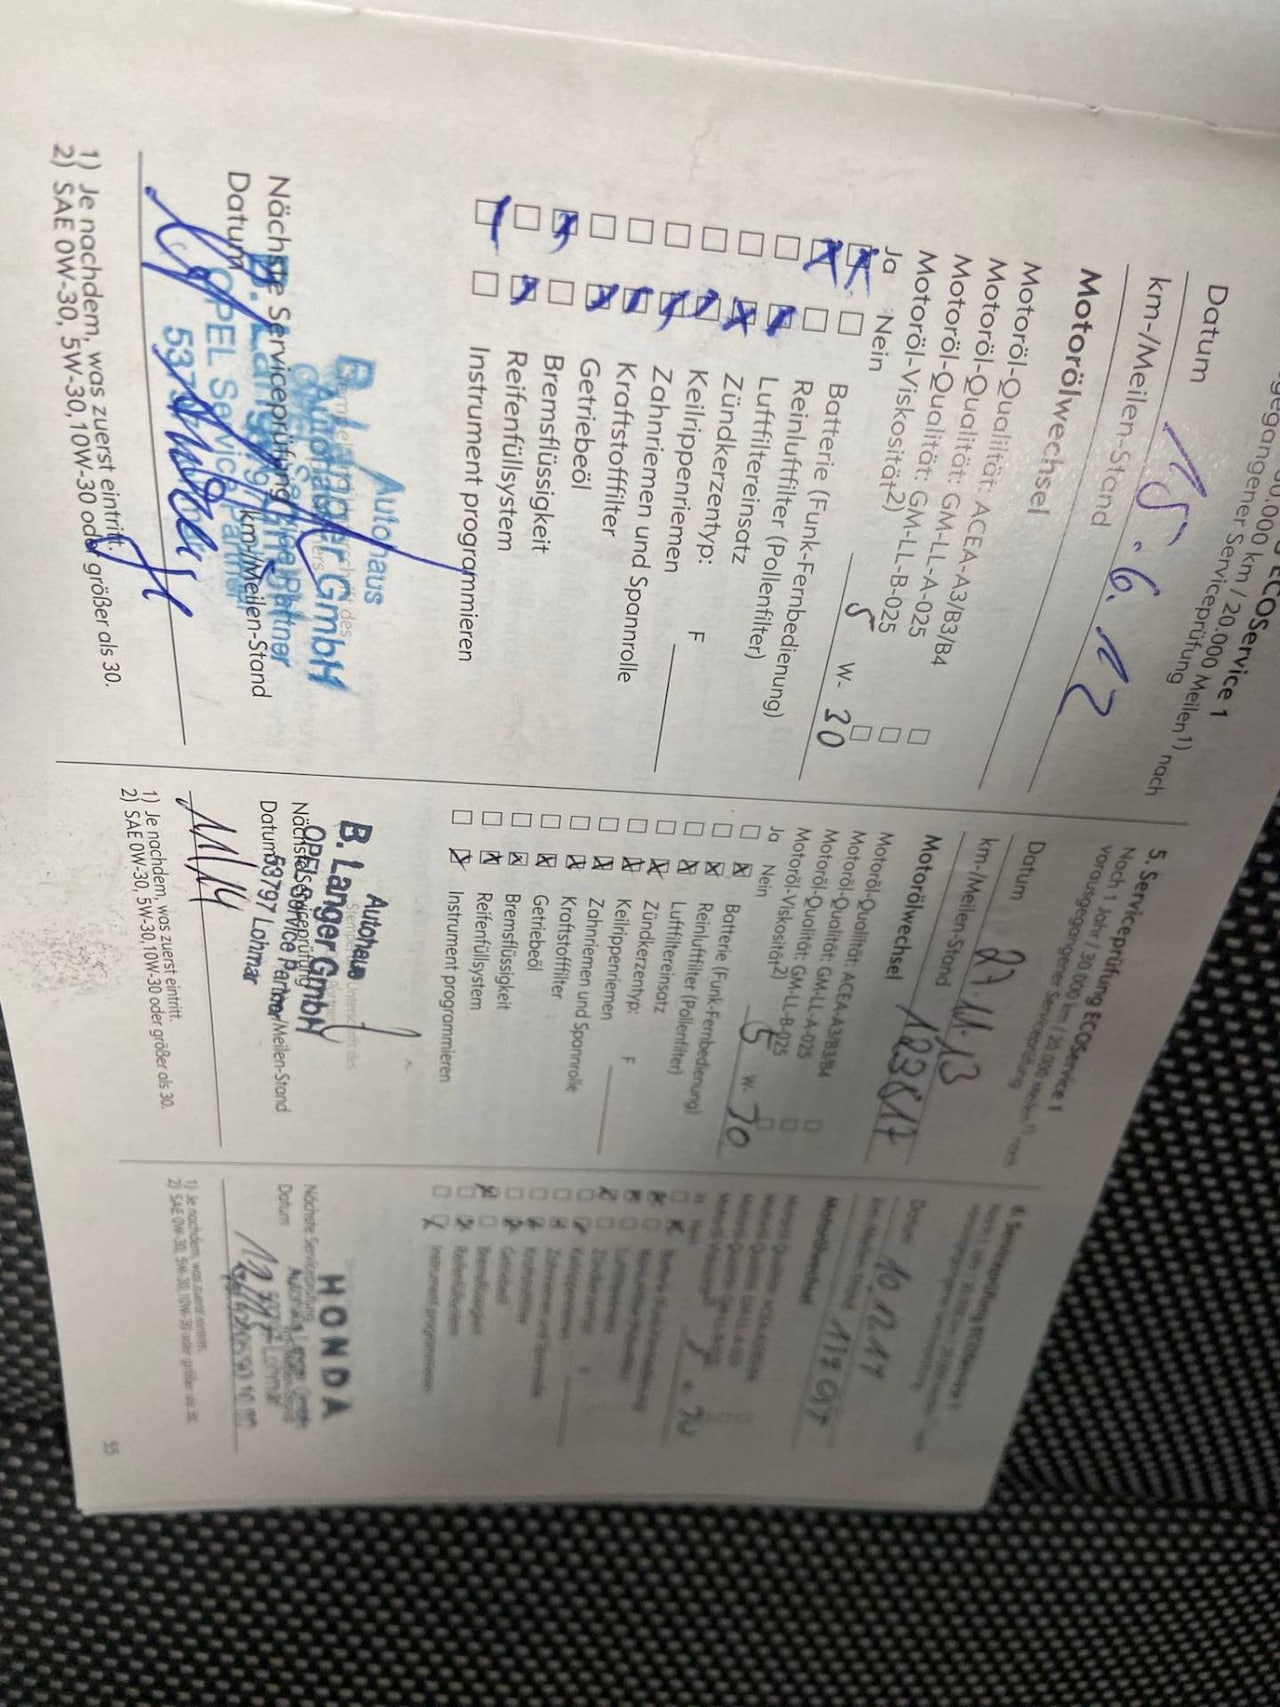 ECOService 1
30.000 km / 20.000 Meilen1) nach
gegangener Serviceprüfung
Datum 15.6.12
km-/Meilen-Stand
Motorölwechsel
Motoröl-Qualität: ACEA-A3/B3/B4
Motoröl-Qualität: GM-LL-A-025
Motoröl-Qualität: GM-LL-B-025
Motoröl-Viskosität2) 5 W- 30
Ja Nein
Batterie (Funk-Fernbedienung)
Reinluftfilter (Pollenfilter)
Luftfiltereinsatz
Zündkerzentyp: F
Keilrippenriemen
Zahnriemen und Spannrolle
Kraftstofffilter
Getriebeöl
Bremsflüssigkeit
Reifenfüllsystem
Instrument programmieren
Autohaus
B. Langer GmbH
OPEL Service Partner
Nächste Serviceprüfung
Datum km-/Meilen-Stand
1) Je nachdem, was zuerst eintritt.
2) SAE 0W-30, 5W-30, 10W-30 oder größer als 30.
5. Serviceprüfung ECOService 1
Nach 1 Jahr / 30.000 km / 20.000 Meilen1) nach
vorausgegangener Serviceprüfung
Datum 27.11.13
km-/Meilen-Stand 123817
Motorölwechsel
Motoröl-Qualität: ACEA-A3/B3/B4
Motoröl-Qualität: GM-LL-A-025
Motoröl-Qualität: GM-LL-B-025
Motoröl-Viskosität2) 5 W- 30
Ja Nein
Batterie (Funk-Fernbedienung)
Reinluftfilter (Pollenfilter)
Luftfiltereinsatz
Zündkerzentyp: F
Keilrippenriemen
Zahnriemen und Spannrolle
Kraftstofffilter
Getriebeöl
Bremsflüssigkeit
Reifenfüllsystem
Instrument programmieren
Autohaus
B. Langer GmbH
OPEL Service Partner
53797 Lohmar
Nächste Serviceprüfung
Datum km-/Meilen-Stand
11/14
1) Je nachdem, was zuerst eintritt.
2) SAE 0W-30, 5W-30, 10W-30 oder größer als 30.
6. Serviceprüfung ECOService 1
Datum 10.12.14
km-/Meilen-Stand
Motorölwechsel
Ja Nein
Zahnriemen und Spannrolle
Kraftstofffilter
Getriebeöl
Bremsflüssigkeit
Reifenfüllsystem
Instrument programmieren
HONDA
Nächste Serviceprüfung
Datum
1) Je nachdem, was zuerst eintritt.
2) SAE 0W-30, 5W-30, 10W-30 oder größer als 30.